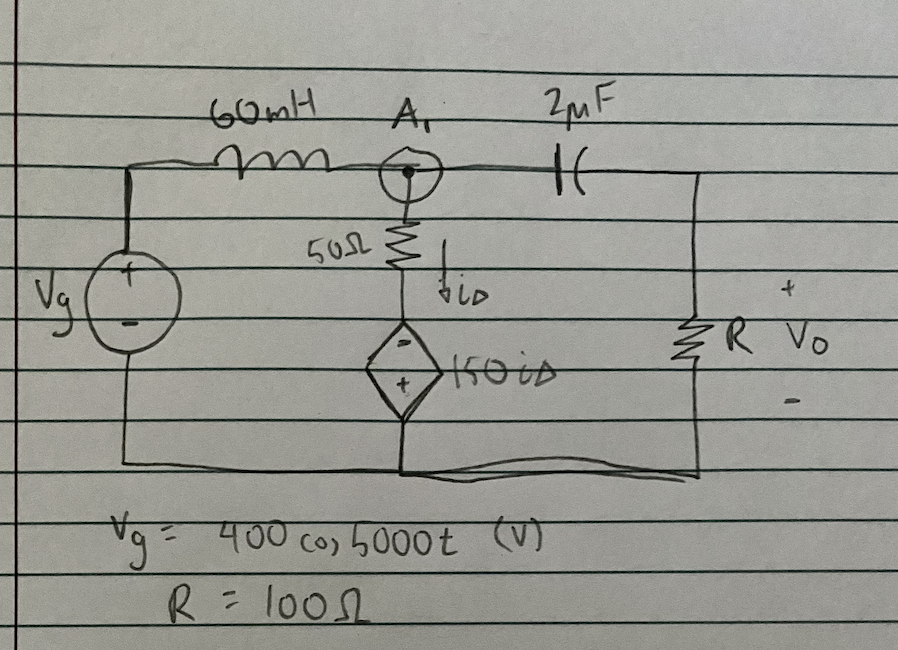 60mH A₁ 2μF
50Ω
iΔ
Vg
+
-
-
+
150iΔ
R
+
Vo
-
Vg = 400 cos 5000t (V)
R = 100Ω